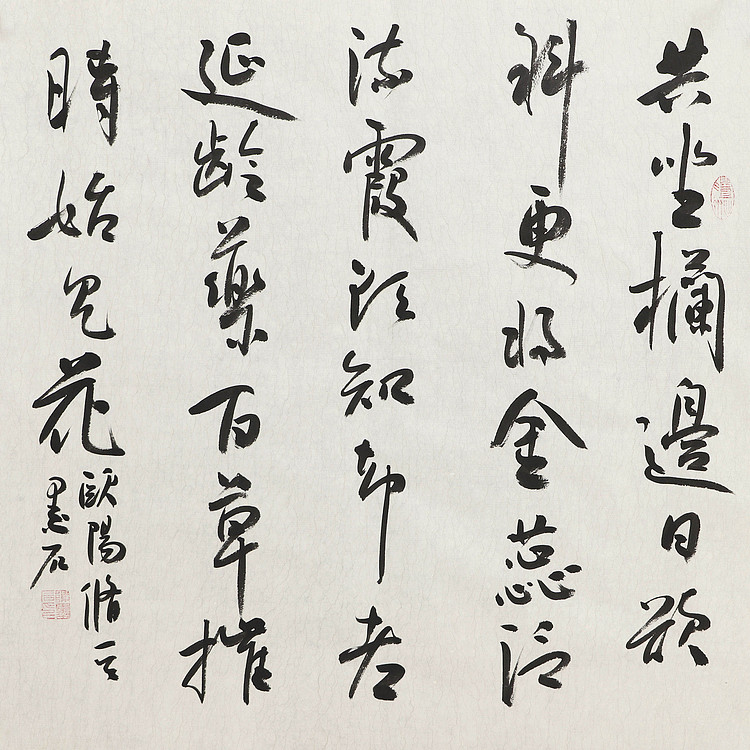 共坐欄邊日欲
斜更将金蕊泛
流霞欲知却老
延齡藥百草摧
時始見花
歐陽脩
墨石